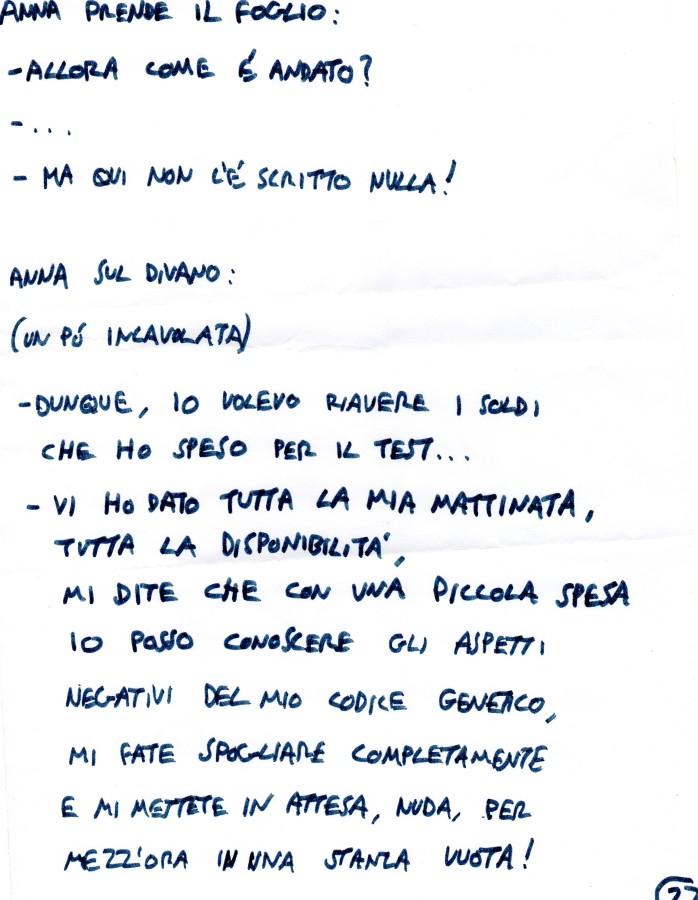 ANNA PRENDE IL FOGLIO:
- ALLORA COME É ANDATO?
- ...
- MA QUI NON C'É SCRITTO NULLA!
ANNA SUL DIVANO:
(UN PÓ INCAVOLATA)
- DUNQUE, IO VOLEVO RIAVERE I SOLDI
CHE HO SPESO PER IL TEST...
- VI HO DATO TUTTA LA MIA MATTINATA,
TUTTA LA DISPONIBILITA',
MI DITE CHE CON UNA PICCOLA SPESA
IO POSSO CONOSCERE GLI ASPETTI
NEGATIVI DEL MIO CODICE GENETICO,
MI FATE SPOGLIARE COMPLETAMENTE
E MI METTETE IN ATTESA, NUDA, PER
MEZZ'ORA IN UNA STANZA VUOTA!